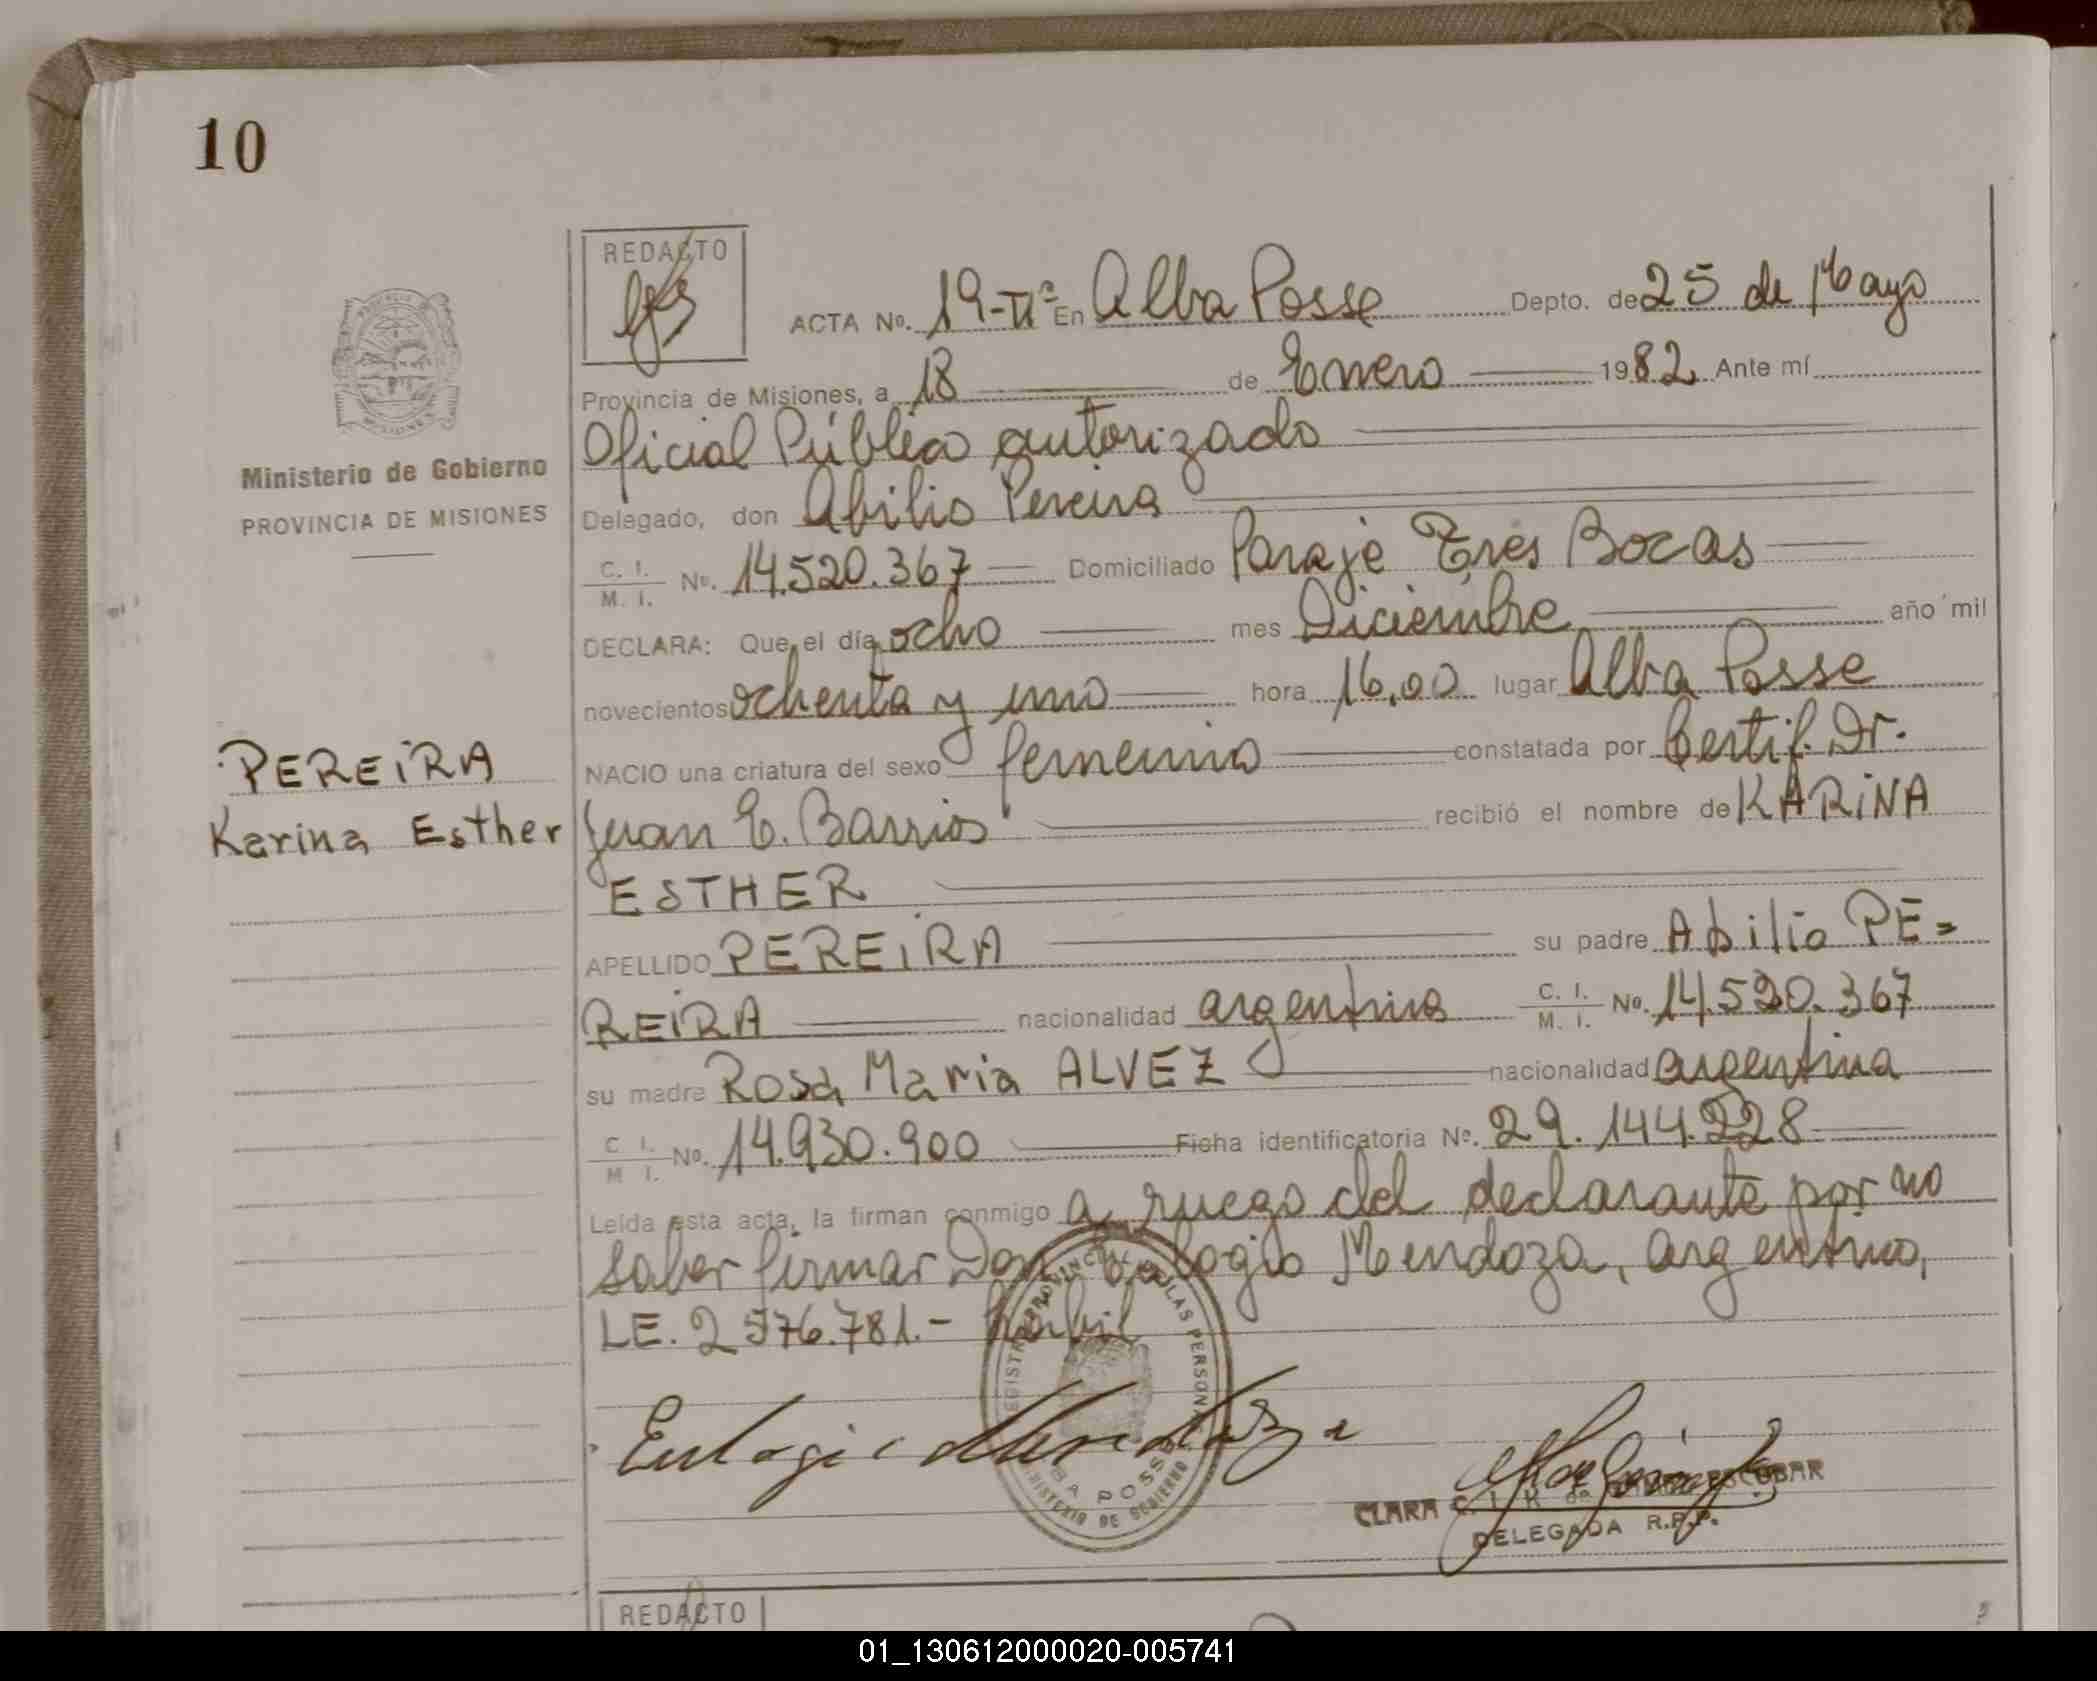 10
REDACTO
ACTA No. 19-IIª En Alba Posse Depto. de 25 de Mayo
Provincia de Misiones, a 18 de Enero 1982 Ante mí
Oficial Público autorizado
Ministerio de Gobierno
PROVINCIA DE MISIONES
Delegado, don Abilio Pereira
C. I. / M. I. No. 14.520.367 Domiciliado Paraje Tres Bocas
DECLARA: Que el día ocho mes Diciembre año mil
novecientos ochenta y uno hora 16,00 lugar Alba Posse
PEREIRA
Karina Esther
NACIO una criatura del sexo femenino constatada por Certif. Dr.
Juan E. Barrios recibió el nombre de KARINA
ESTHER
APELLIDO PEREIRA su padre Abilio PE=
REIRA nacionalidad argentina C. I. / M. I. No. 14.520.367
su madre Rosa Maria ALVEZ nacionalidad argentina
C. I. / M. I. No. 14.930.900 Ficha identificatoria No. 29.144.228
Leída esta acta, la firman conmigo a ruego del declarante por no
saber firmar Don Eulogio Mendoza, argentino,
LE. 2576.781.- habil
REGISTRO PROVINCIAL DE LAS PERSONAS
ALBA POSSE
MINISTERIO DE GOBIERNO
Eulogio Mendoza
CLARA C. I. K. de ESCOBAR
DELEGADA R.P.P.
REDACTO
01_130612000020-005741